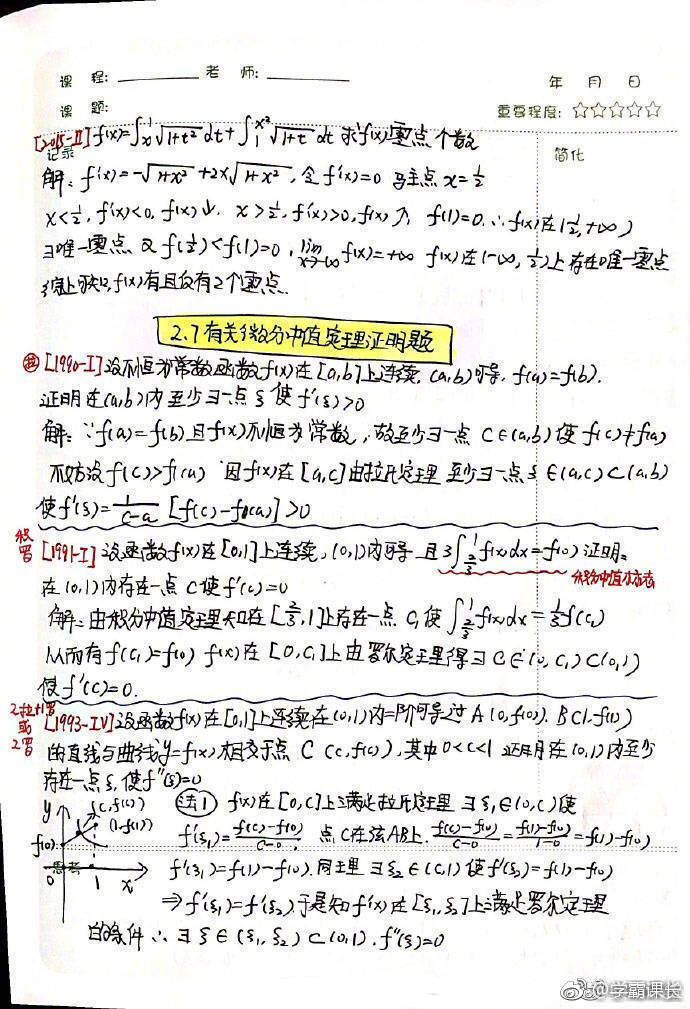 课 程: 老 师: 年 月 日
课 题: 重要程度: ☆☆☆☆☆
[2015-II] f(x)=∫_x^1 √(1+t²) dt + ∫_1^{x²} √(1+t) dt 求f(x)零点个数
记录 简化
解: f'(x)=-√(1+x²)+2x√(1+x²), 令f'(x)=0 驻点 x=1/2
x<1/2, f'(x)<0, f(x)↓. x>1/2, f'(x)>0, f(x)↑, f(1)=0. ∴f(x)在(1/2,+∞)
∃唯一零点 又f(1/2)<f(1)=0, lim_{x→-∞} f(x)=+∞ f(x)在(-∞,1/2)上存在唯一零点
综上可知, f(x)有且仅有2个零点.
2.7有关微分中值定理证明题
拉 [1990-I]设不恒为常数函数f(x)在[a,b]上连续. (a,b)可导. f(a)=f(b).
证明在(a,b)内至少∃一点ξ使f'(ξ)>0
解: ∵f(a)=f(b)且f(x)不恒为常数, 故至少∃一点 C∈(a,b)使f(c)≠f(a)
不妨设f(c)>f(a) 因f(x)在[a,c]由拉氏定理 至少∃一点ξ∈(a,c)⊂(a,b)
使f'(ξ)=1/(c-a) [f(c)-f(a)]>0
积罗 [1991-I]设函数f(x)在[0,1]上连续, (0,1)内可导 且3∫_{2/3}^1 f(x)dx=f(0) 证明:
积分中值
在(0,1)内存在一点C使f'(c)=0
解: 由积分中值定理知在[2/3,1]上存在一点 C₁使 ∫_{2/3}^1 f(x)dx=1/3f(C₁)
从而有f(C₁)=f(0) f(x)在[0,C₁]上由罗尔定理得∃C∈(0,C₁)⊂(0,1)
使f'(C)=0.
2拉+1罗或2罗 [1993-IV]设函数f(x)在[0,1]上连续在(0,1)内二阶可导过A(0,f(0)). B(1,f(1))
的直线与曲线y=f(x)相交于点 C(c,f(c)), 其中0<c<1 证明在(0,1)内至少
存在一点ξ, 使f''(ξ)=0
y (c,f(c)) (1,f(1)) f(0) 0 1 x
法1 f(x)在[0,c]上满足拉氏定理 ∃ξ₁∈(0,c)使
f'(ξ₁)=(f(c)-f(0))/(c-0), 点C在弦AB上. (f(c)-f(0))/(c-0)=(f(1)-f(0))/(1-0)=f(1)-f(0)
思考 f'(ξ₁)=f(1)-f(0). 同理 ∃ξ₂∈(c,1)使f'(ξ₂)=f(1)-f(0)
⇒f'(ξ₁)=f'(ξ₂)于是知f'(x)在[ξ₁,ξ₂]上满足罗尔定理
的条件 ∴∃ξ∈(ξ₁,ξ₂)⊂(0,1). f''(ξ)=0
@学霸课长